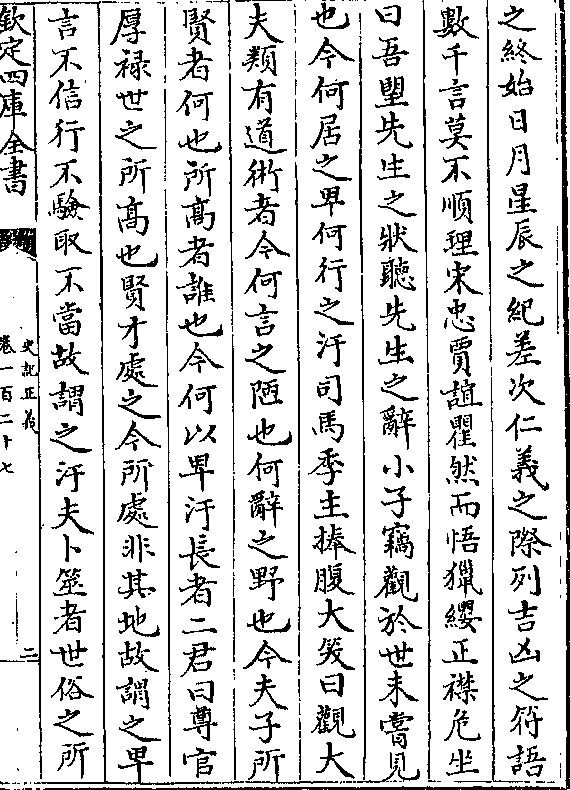 之終始日月星辰之紀差次仁義之際列吉凶之符語
數千言莫不順理宋忠賈誼瞿然而悟獵纓正襟危坐
曰吾望先生之狀聽先生之辭小子竊觀於世未嘗見
也今何居之卑何行之汙司馬季主捧腹大笑曰觀大
夫類有道術者今何言之陋也何辭之野也今夫子所
賢者何也所髙者誰也今何以卑汙長者二君曰尊官
厚禄世之所髙也賢才處之今所處非其地故謂之卑
言不信行不驗取不當故謂之汙夫卜筮者世俗之所
欽定四庫全書
史記正義
卷一百二十七
二